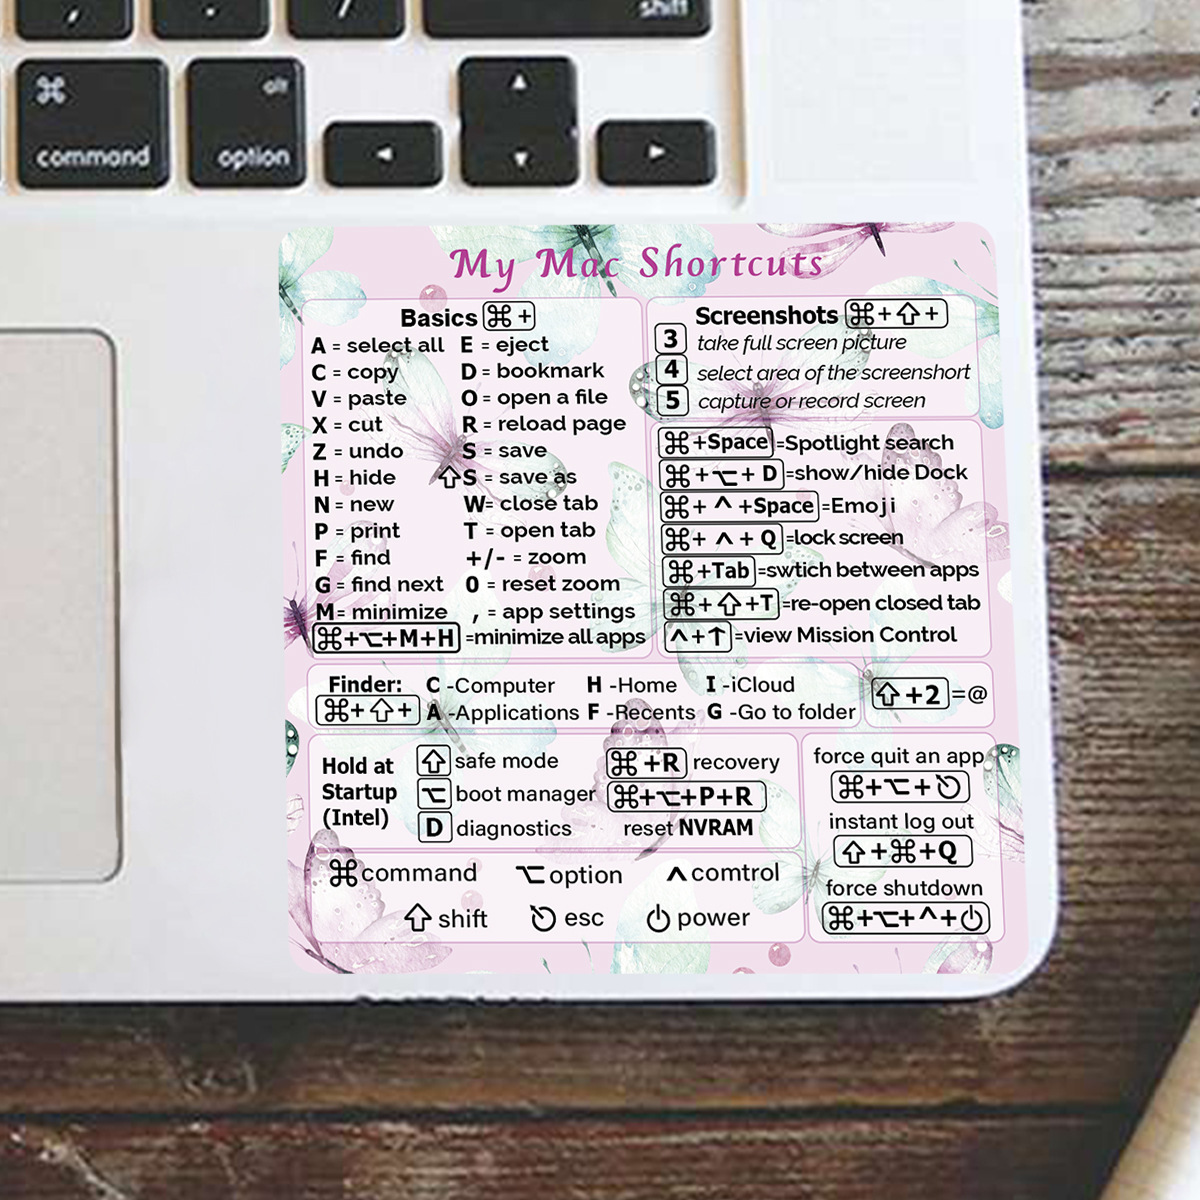 , . / shift
⌘ alt ▲
command option ◄ ▼ ►
My Mac Shortcuts
Basics ⌘ +
A = select all E = eject
C = copy D = bookmark
V = paste O = open a file
X = cut R = reload page
Z = undo S = save
H = hide ⇧S = save as
N = new W= close tab
P = print T = open tab
F = find +/- = zoom
G = find next 0 = reset zoom
M= minimize , = app settings
⌘+⌥+M+H =minimize all apps
Screenshots ⌘+⇧+
3 take full screen picture
4 select area of the screenshort
5 capture or record screen
⌘+Space =Spotlight search
⌘+⌥+ D =show/hide Dock
⌘+ ^ +Space =Emoji
⌘+ ^ + Q =lock screen
⌘+Tab =swtich between apps
⌘+⇧+T =re-open closed tab
^+↑ =view Mission Control
Finder: C -Computer H -Home I -iCloud
⌘+⇧+ A -Applications F -Recents G -Go to folder
⇧+2 =@
Hold at
Startup
(Intel)
⇧ safe mode ⌘+R recovery
⌥ boot manager ⌘+⌥+P+R
D diagnostics reset NVRAM
force quit an app
⌘+⌥+⎋
instant log out
⇧+⌘+Q
force shutdown
⌘+⌥+^+⏻
⌘command ⌥option ^comtrol
⇧ shift ⎋ esc ⏻ power